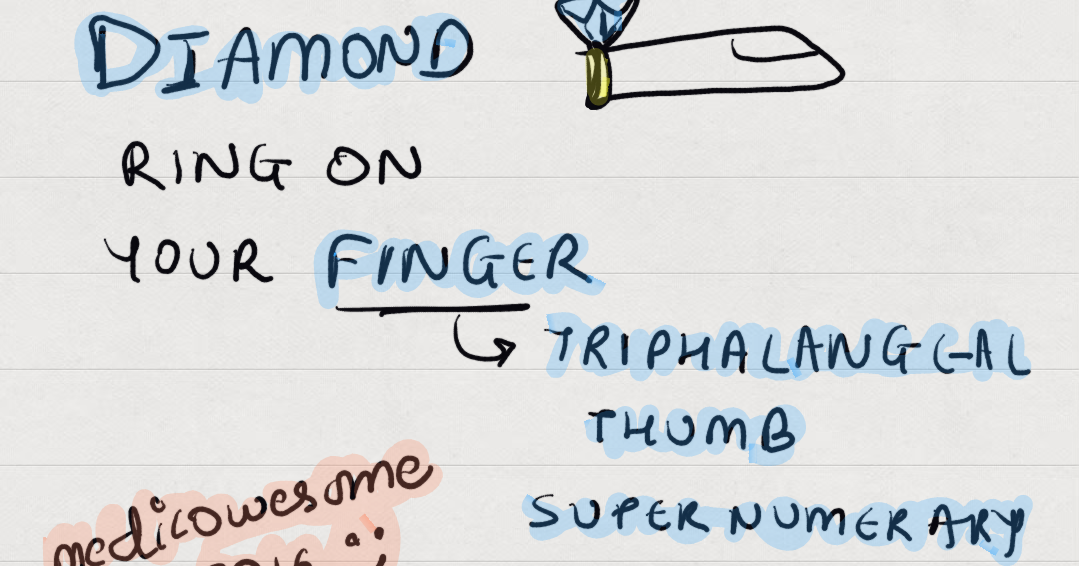 DIAMOND
RING ON
YOUR FINGER
TRIPHALANGEAL
THUMB
SUPERNUMERARY
medicowesome